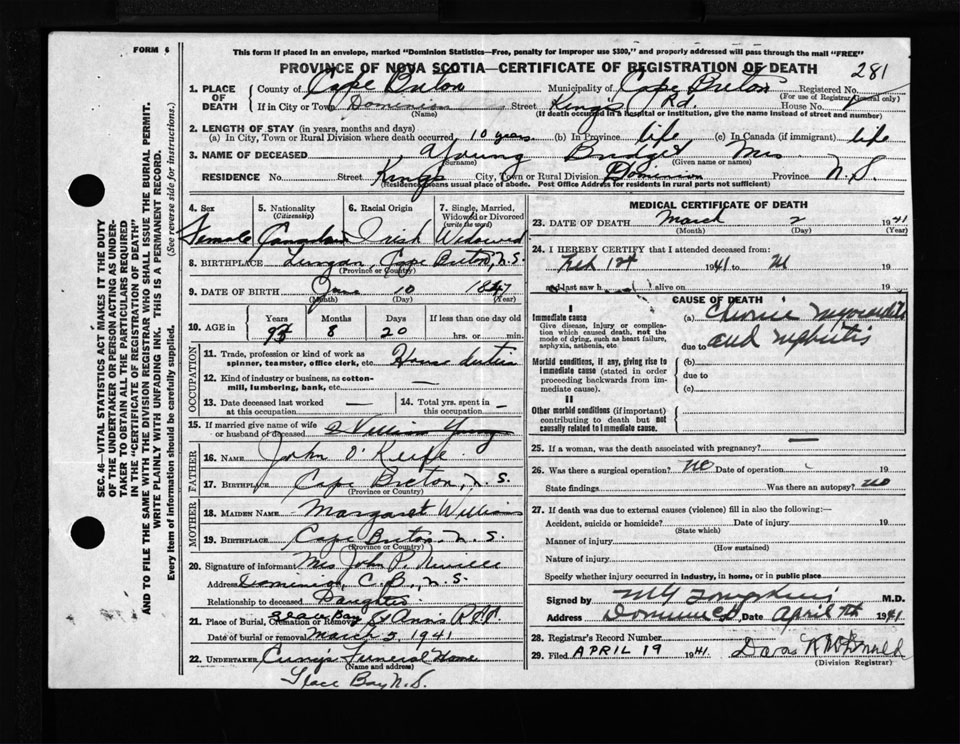 FORM 6
This form if placed in an envelope, marked "Dominion Statistics—Free, penalty for improper use $300," and properly addressed will pass through the mail "FREE"
PROVINCE OF NOVA SCOTIA—CERTIFICATE OF REGISTRATION OF DEATH 281
1. PLACE OF DEATH County of Cape Breton Municipality of Cape Breton Registered No.
(For use of Registrar General only)
If in City or Town Dominion Street King's Rd. House No.
(Name) (If death occurred in a hospital or institution, give the name instead of street and number)
2. LENGTH OF STAY (in years, months and days)
(a) In City, Town or Rural Division where death occurred 10 years (b) In Province life (c) In Canada (if immigrant) life
3. NAME OF DECEASED Young Bridget Mrs
(Surname) (Given name or names)
RESIDENCE No. Street Kings City, Town or Rural Division Dominion Province N.S.
(Residence means usual place of abode. Post Office Address for residents in rural parts not sufficient)
4. Sex 5. Nationality (Citizenship) 6. Racial Origin 7. Single, Married, Widowed or Divorced (write the word)
Female Canadian Irish Widowed
8. BIRTHPLACE Lingan, Cape Breton, N.S.
(Province or Country)
9. DATE OF BIRTH 10 1847
(Month) (Day) (Year)
10. AGE in Years Months Days If less than one day old
93 8 20 hrs. or min.
OCCUPATION
11. Trade, profession or kind of work as spinner, teamster, office clerk, etc. House duties
12. Kind of industry or business, as cotton-mill, lumbering, bank, etc. —
13. Date deceased last worked at this occupation — 14. Total yrs. spent in this occupation —
15. If married give name of wife or husband of deceased William Young
FATHER
16. NAME John O'Keefe
17. BIRTHPLACE Cape Breton, N.S.
(Province or Country)
MOTHER
18. MAIDEN NAME Margaret Williams
19. BIRTHPLACE Cape Breton N.S.
(Province or Country)
20. Signature of informant Mrs John P. Neville
Address Dominion, C.B., N.S.
Relationship to deceased Daughter
21. Place of Burial, Cremation or Removal Glace Bay St Anns
Date of burial or removal March 5, 1941
22. UNDERTAKER Curry's Funeral Home
(Name and address)
Glace Bay N.S.
MEDICAL CERTIFICATE OF DEATH
23. DATE OF DEATH March 2 1941
(Month) (Day) (Year)
24. I HEREBY CERTIFY that I attended deceased from:
Feb 1st 1941 to 19
and last saw h alive on 19
CAUSE OF DEATH
I
Immediate cause (a) Chronic myocarditis
Give disease, injury or complication which caused death, not the mode of dying, such as heart failure, asphyxia, asthenia, etc
due to and nephritis
Morbid conditions, if any, giving rise to immediate cause (stated in order proceeding backwards from immediate cause).
(b)
due to
(c)
II
Other morbid conditions (if important) contributing to death but not causally related to immediate cause.
25. If a woman, was the death associated with pregnancy? —
26. Was there a surgical operation? no Date of operation 19
State findings Was there an autopsy? no
27. If death was due to external causes (violence) fill in also the following:—
Accident, suicide or homicide? Date of injury 19
(State which)
Manner of injury
(How sustained)
Nature of injury
Specify whether injury occurred in industry, in home, or in public place
Signed by M.D.
Address Dominion Date April 1941
28. Registrar's Record Number
29. Filed APRIL 19 1941
(Division Registrar)
SEC. 46—VITAL STATISTICS ACT MAKES IT THE DUTY
OF THE UNDERTAKER OR PERSON ACTING AS UNDER-
TAKER TO OBTAIN ALL THE PARTICULARS REQUIRED
IN THE "CERTIFICATE OF REGISTRATION OF DEATH"
AND TO FILE THE SAME WITH THE DIVISION REGISTRAR WHO SHALL ISSUE THE BURIAL PERMIT.
WRITE PLAINLY WITH UNFADING INK. THIS IS A PERMANENT RECORD.
Every item of information should be carefully supplied. (See reverse side for instructions.)